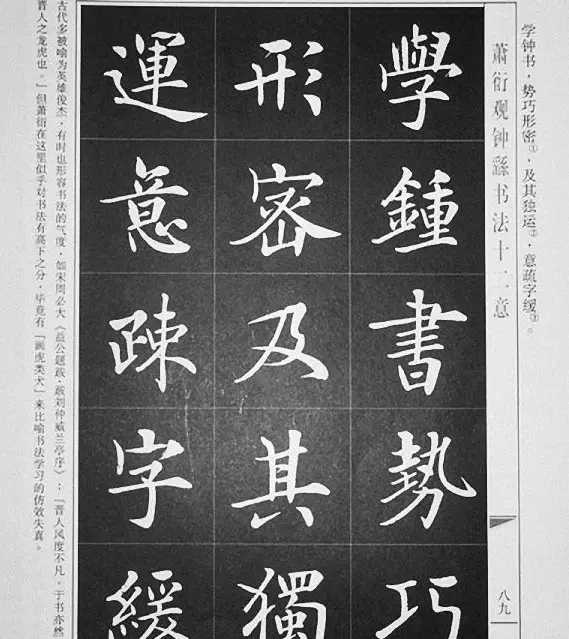 学钟书，势巧形密①，及其独运②，意疏字缓③。
萧衍观钟繇书法十二意
八九
學鍾書勢巧
形密及其獨
運意疎字緩
古代多被喻为英雄俊杰，有时也形容书法的气度，如宋周必大《益公题跋·跋刘仲威兰亭序》：「晋人风度不凡，于书亦然
晋人之龙虎也。」但萧衍在这里似乎对书法有高下之分，毕竟有「画虎类犬」来比喻书法学习的仿效失真。